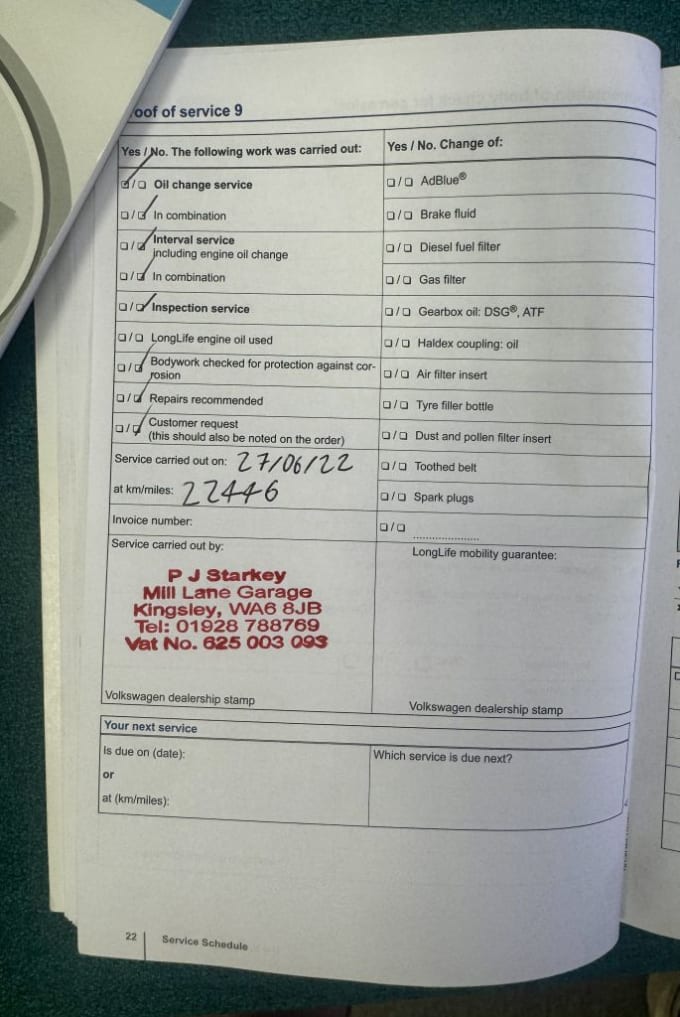 oof of service 9
Yes / No. The following work was carried out:
☑/☐ Oil change service
☐/☑ In combination
☐/☑ Interval service
including engine oil change
☐/☑ In combination
☐/☑ Inspection service
☐/☐ LongLife engine oil used
☐/☑ Bodywork checked for protection against cor-
rosion
☐/☑ Repairs recommended
☐/☑ Customer request
(this should also be noted on the order)
Service carried out on: 27/06/22
at km/miles: 22446
Invoice number:
Service carried out by:
P J Starkey
Mill Lane Garage
Kingsley, WA6 8JB
Tel: 01928 788769
Vat No. 625 003 093
Volkswagen dealership stamp
Yes / No. Change of:
☐/☐ AdBlue®
☐/☐ Brake fluid
☐/☐ Diesel fuel filter
☐/☐ Gas filter
☐/☐ Gearbox oil: DSG®, ATF
☐/☐ Haldex coupling: oil
☐/☐ Air filter insert
☐/☐ Tyre filler bottle
☐/☐ Dust and pollen filter insert
☐/☐ Toothed belt
☐/☐ Spark plugs
☐/☐ ....................
LongLife mobility guarantee:
Volkswagen dealership stamp
Your next service
Is due on (date):
or
at (km/miles):
Which service is due next?
22 Service Schedule